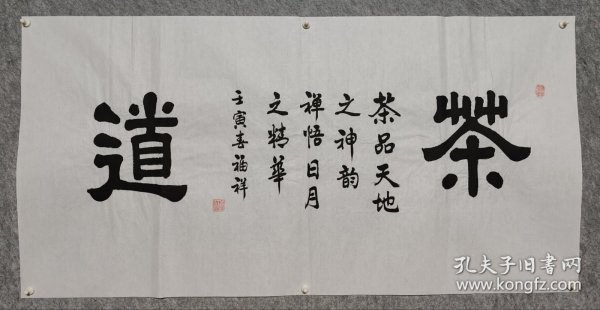 茶
茶品天地
之神韵
禅悟日月
之精华
壬寅喜福祥
道
孔夫子旧书网
www.kongfz.com